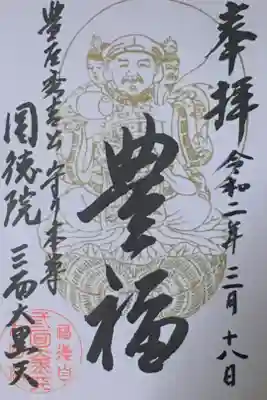 奉拝
令和二年三月十八日
豊福
豊臣秀吉公守り本尊
圓徳院 三面大黒天